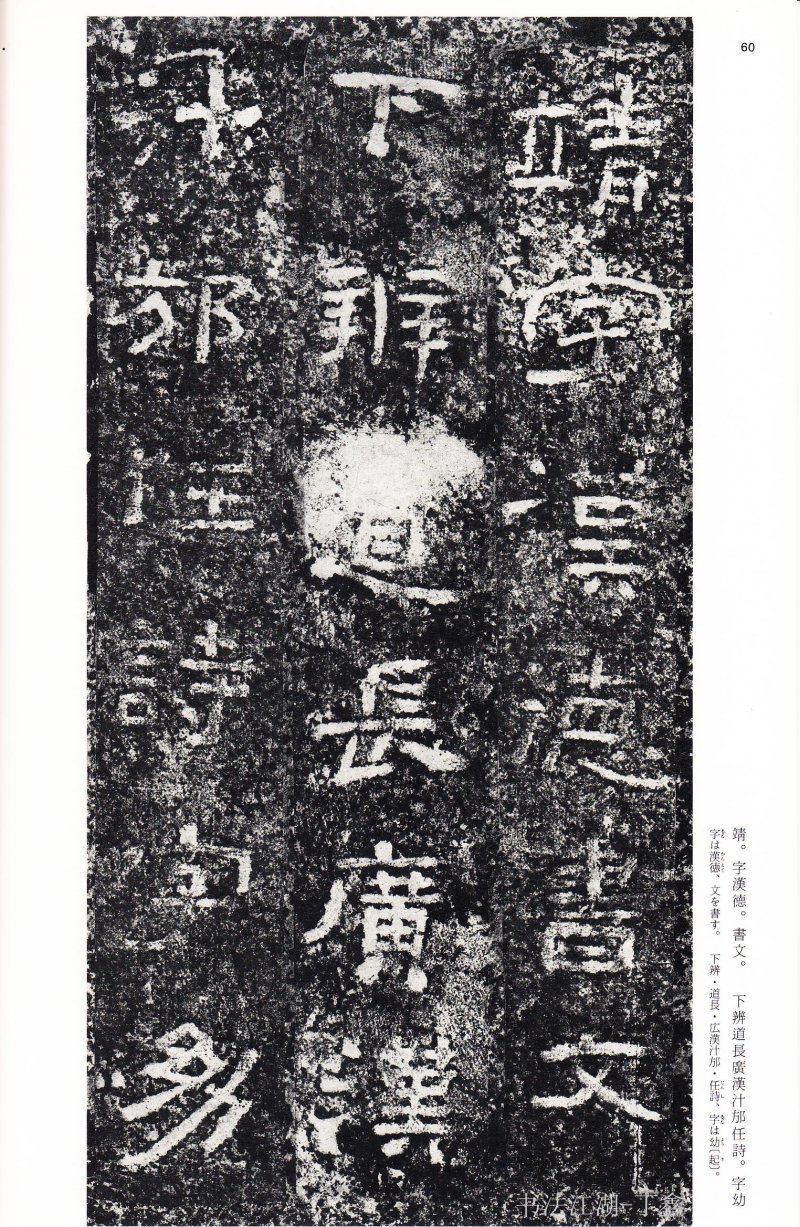 60
靖字漢德書文
下辨道長廣漢
汁邡任詩字幼
靖。字漢德。書文。　下辨道長廣漢汁邡任詩。字幼
字は漢徳、文を書す。　下辨・道長・広漢汁邡・任詩、字は幼〔起〕。
书法江湖